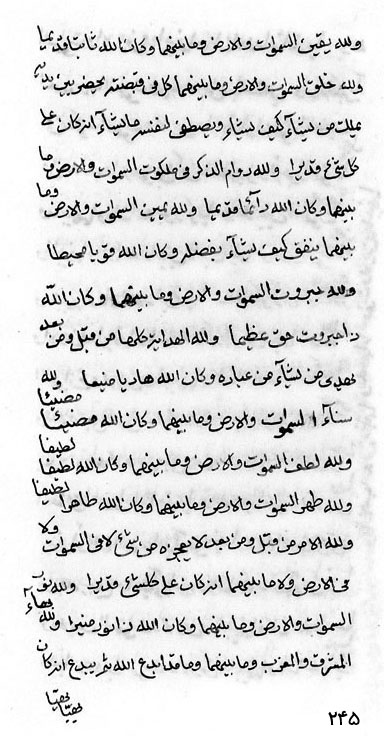 ولله يقين السموات والارض وما بينهما وكان الله ثابتا قديما
ولله خلق السموات والارض وما بينهما كل فى قبضته يحضر بين يديه
يملك من يشآء كيف يشآء ويصطفى لنفسه ما يشآء انه كان على
كل شئ قديرا ولله دوام الذكر فى ملكوت السموات والارض وما
بينهما وكان الله دآئما قديما ولله يمين السموات والارض وما
بينهما ينفق كيف يشآء بفضله وكان الله قويا محيطا
ولله جبروت السموات والارض وما بينهما وكان الله
ذا جبروت حق عظيما ولله الهداية كلها من قبل ومن بعد
يهدى من يشآء من عباده وكان الله هاديا منيعا ولله
سنآء السموات والارض وما بينهما وكان الله مضيئا مضيئا
ولله لطف السموات والارض وما بينهما وكان الله لطيفا لطيفا
ولله طهر السموات والارض وما بينهما وكان الله طاهرا نظيفا
ولله الامر من قبل ومن بعد لا يعجزه من شئ لا فى السموات ولا
فى الارض ولا ما بينهما انه كان على كل شئ قديرا ولله نور
السموات والارض وما بينهما وكان الله ذا نور منيرا ولله بهآء
المشرق والمغرب وما بينهما وما قد ابدع الله ثم يبدع انه كان
بهيا بهيا
٢٤٥